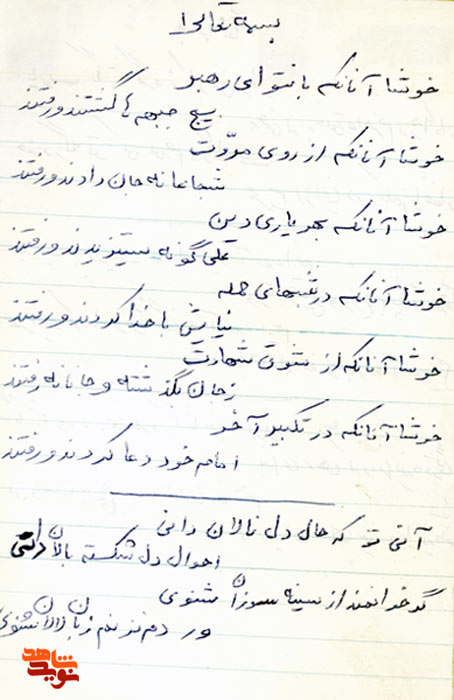 بسمه تعالی
خوشا آنانکه با فتوای رهبر
بسیج جبهه ها گشتند و رفتند
خوشا آنانکه از روی مودّت
شجاعانه جان دادند و رفتند
خوشا آنانکه بهر یاری دین
علی گونه ستیزیدند و رفتند
خوشا آنانکه در شبهای حمله
نیایش با خدا کردند و رفتند
خوشا آنانکه از شوق شهادت
زجان بگذشته و جانانه رفتند
خوشا آنانکه در تکبیر آخر
امام خود دعا کردند و رفتند
آنی تو که حال دل نالان دانی
احوال دل شکسته بالان دانی
گر خوانمت از سینه سوزان شنوی
ور دم نزنم زبان لالان شنوی
نوید شاهد